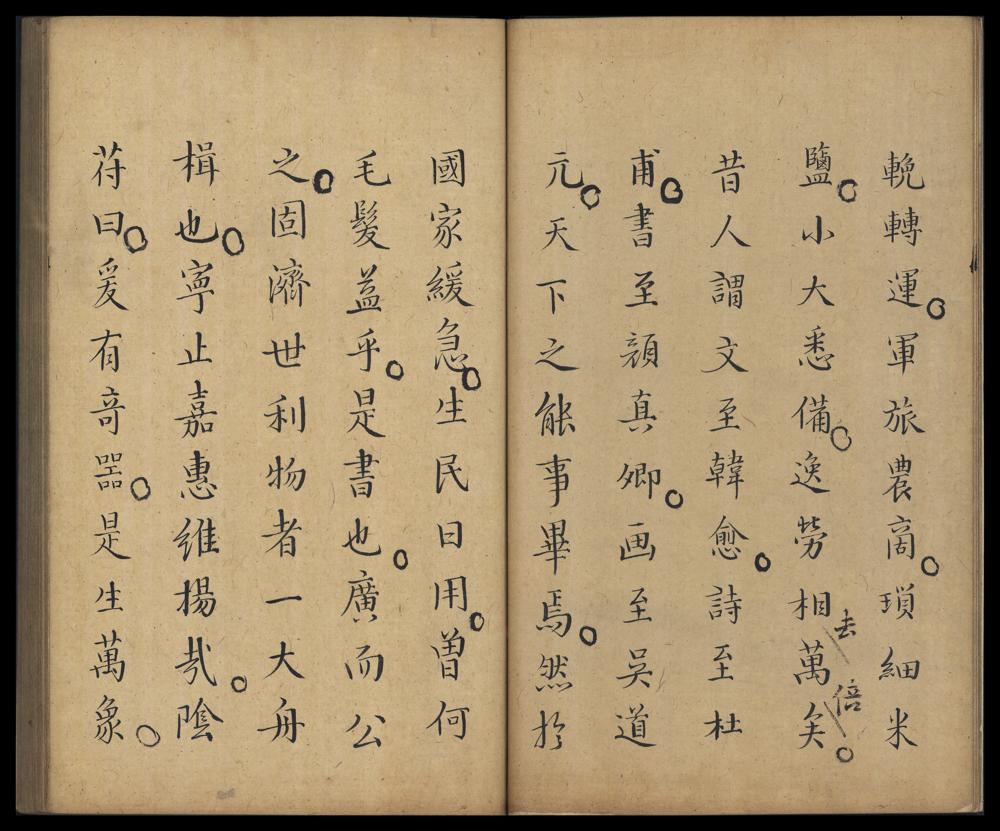 輓轉運軍旅農商瑣細米
鹽小大悉備逸勞相萬矣
去
倍
昔人謂文至韓愈詩至杜
甫書至顔真卿画至吳道
元天下之能事畢焉然於
國家緩急生民日用曽何
毛髮益乎是書也廣而公
之固濟世利物者一大舟
楫也寧止嘉惠維揚㢤陰
符曰爰有竒噐是生萬象